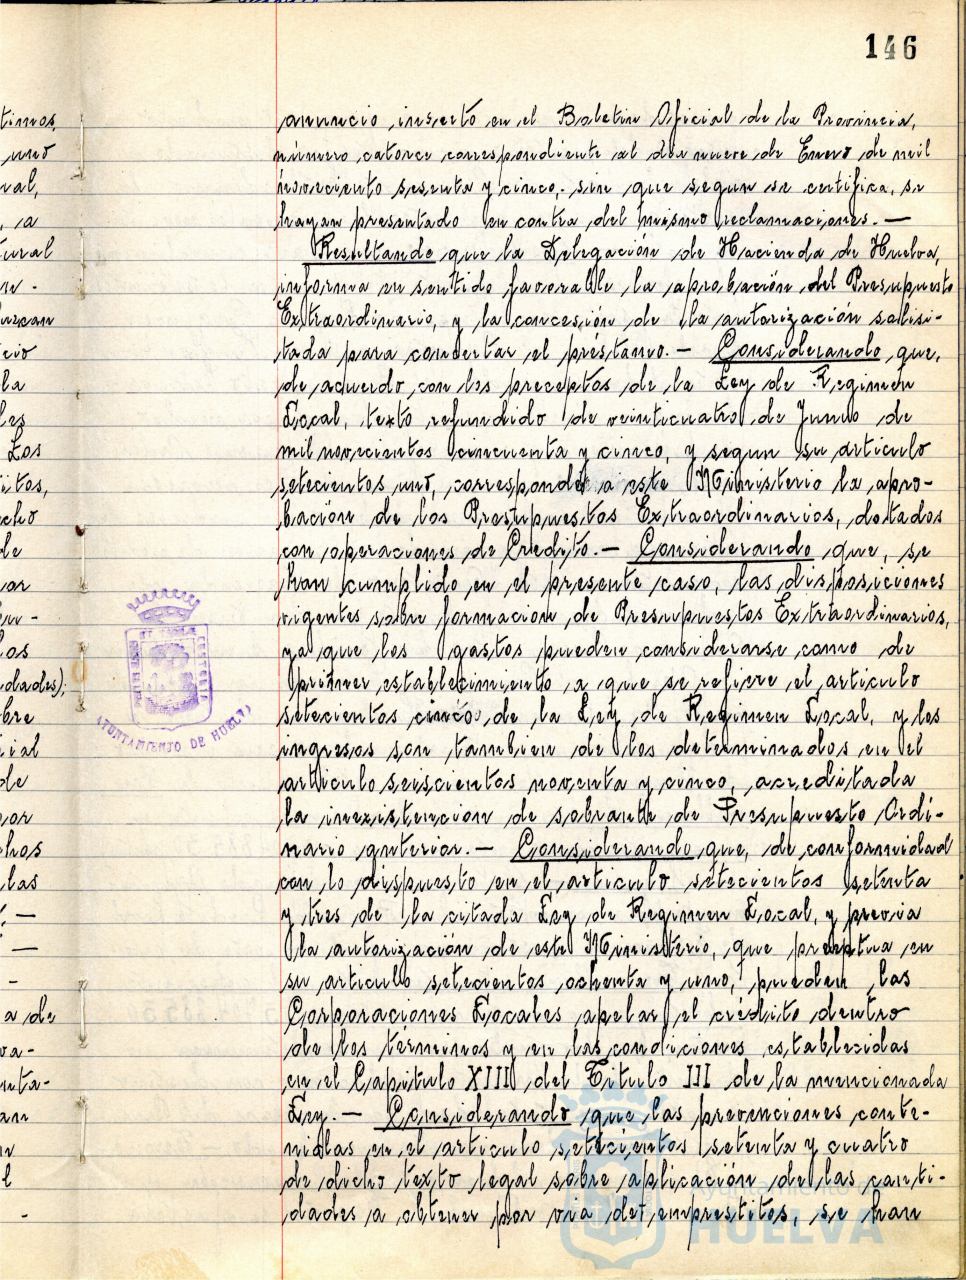 146
anuncio inserto en el Boletin Oficial de la Provincia,
número catorce correspondiente al dia nueve de Enero de mil
novecientos sesenta y cinco, sin que segun se certifica, se
hayan presentado en contra del mismo reclamaciones.—
Resultando que la Delegación de Hacienda de Huelva,
informa en sentido favorable la aprobación del Presupuesto
Extraordinario, y la concesión de la autorización solisi-
tada para concertar el préstamo.— Considerando que,
de acuerdo con los preceptos de la Ley de Regimen
Local, texto refundido de veinticuatro de Junio de
mil novecientos cincuenta y cinco, y segun su articulo
setecientos uno, corresponde a este Ministerio la apro-
bación de los Presupuestos Extraordinarios, dotados
con operaciones de Credito.— Considerando que, se
han cumplido en el presente caso, las disposiciones
vigentes sobre formacion de Presupuestos Extraordinarios,
ya que los gastos pueden considerarse como de
primer establecimiento a que se refiere el articulo
setecientos cinco de la Ley de Regimen Local, y los
ingresos son tambien de los determinados en el
articulo seiscientos noventa y cinco, acreditada
la inexistencion de sobrante de Presupuesto Ordi-
nario anterior.— Considerando que, de conformidad
con lo dispuesto en el articulo setecientos setenta
y tres de la citada Ley de Regimen Local, y previa
la autorización de este Ministerio, que preceptua en
su articulo setecientos ochenta y uno, pueden las
Corporaciones Locales apelar al crédito dentro
de los términos y en las condiciones establecidas
en el Capitulo XIII del Titulo III de la mencionada
Ley.— Considerando que las prevenciones conte-
nidas en el articulo setecientos setenta y cuatro
de dicho texto legal sobre aplicación de las canti-
dades a obtener por via de emprestitos, se han
AYUNTAMIENTO DE HUELVA
Ayuntamiento de
HUELVA